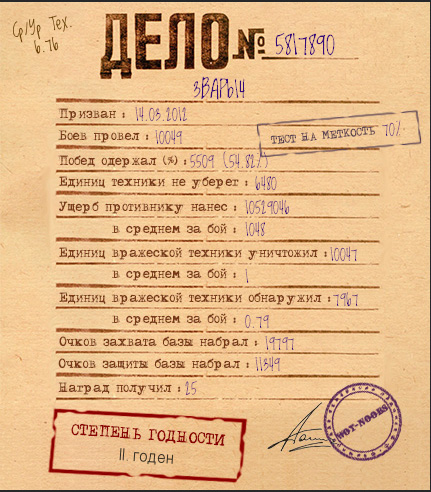 Ср/Ур Тех.
6.76
ДЕЛО № 5817890
ЗВАРЫ4
Призван : 14.03.2012
Боев провел : 10049
ТЕСТ НА МЕТКОСТЬ 70%
Побед одержал (%) : 5509 (54.82%)
Единиц техники не уберег : 6480
Ущерб противнику нанес : 10529046
в среднем за бой : 1048
Единиц вражеской техники уничтожил : 10047
в среднем за бой : 1
Единиц вражеской техники обнаружил : 7967
в среднем за бой : 0.79
Очков захвата базы набрал : 19797
Очков защиты базы набрал : 11349
Наград получил : 25
СТЕПЕНЬ ГОДНОСТИ
II. годен
WOT-NOOBS